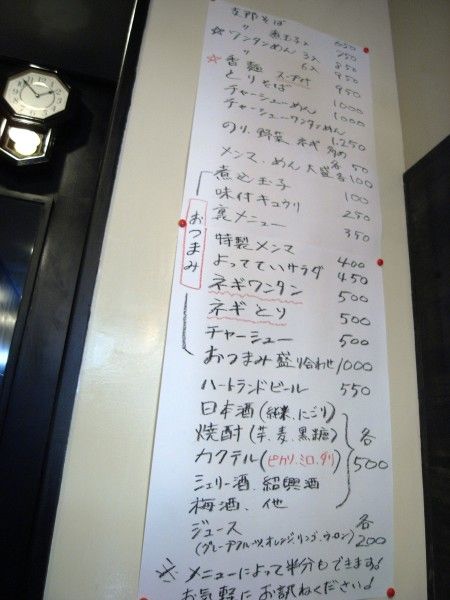 支那そば 650
〃 煮玉子入 750
☆ワンタンめん 3入 850
〃 6入 950
☆香麺 スープ付 950
とりそば
チャーシューめん 1000
チャーシューワンタンめん 1,250
のり、野菜 各 50
メンマ、めん大盛 各100
煮込玉子 100
味付キュウリ 250
裏メニュー 350
おつまみ
特製メンマ 400
よってていサラダ 450
ネギワンタン 500
ネギとり 500
チャーシュー 500
おつまみ盛り合わせ 1000
ハートランドビール 550
日本酒(純米、にごり)
焼酎(芋、麦、黒糖) 各
カクテル( ) 500
シェリー酒、紹興酒
梅酒、他
ジュース 各
(グレープフルーツ、オレンジ、リンゴ、ウーロン) 200
※メニューによって半分もできます♪
お気軽にお訊ねください♪